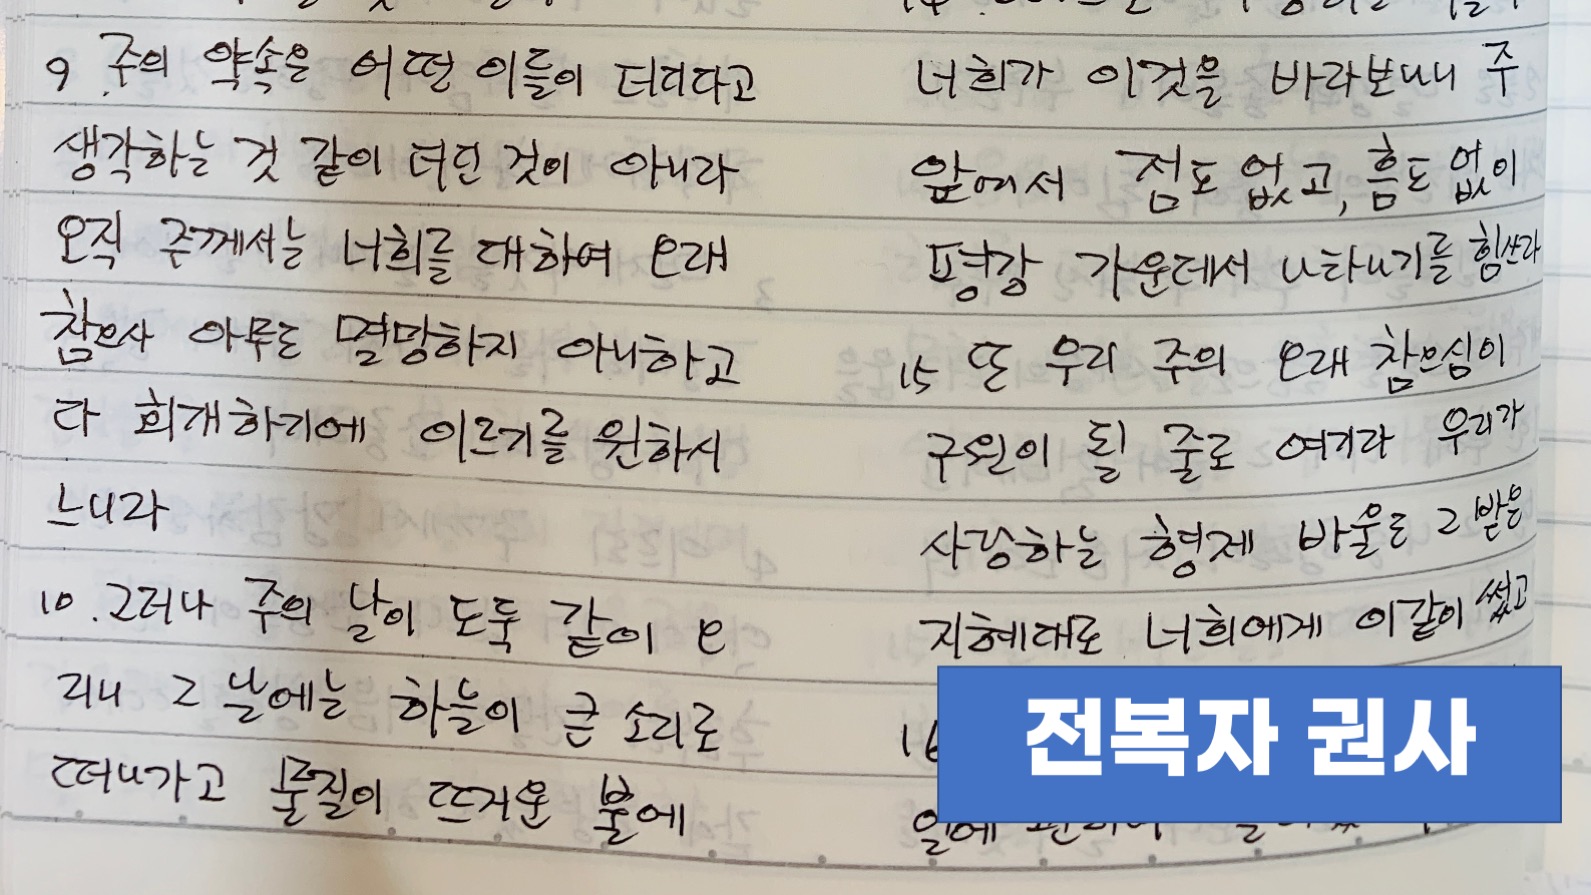 9. 주의 약속은 어떤 이들이 더디다고
생각하는 것 같이 더딘 것이 아니라
오직 주께서는 너희를 대하여 오래
참으사 아무도 멸망하지 아니하고
다 회개하기에 이르기를 원하시
느니라
10. 그러나 주의 날이 도둑 같이 오
리니 그 날에는 하늘이 큰 소리로
떠나가고 물질이 뜨거운 불에
너희가 이것을 바라보나니 주
앞에서 점도 없고, 흠도 없이
평강 가운데서 나타나기를 힘쓰라
15 또 우리 주의 오래 참으심이
구원이 될 줄로 여기라 우리가
사랑하는 형제 바울도 그 받은
지혜대로 너희에게 이같이 썼고
16
일에
전복자 권사